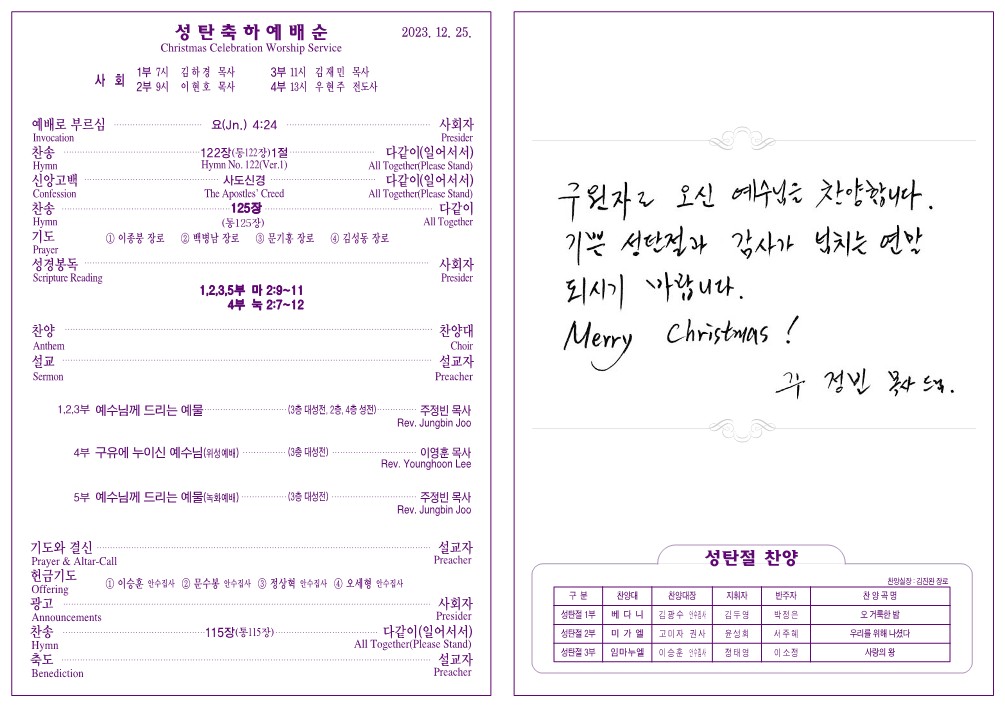 성탄축하예배순
2023. 12. 25.
Christmas Celebration Worship Service
사 회 1부 7시 김하경 목사 3부 11시 김재민 목사
2부 9시 이현호 목사 4부 13시 우현주 전도사
예배로 부르심 요(Jn.) 4:24 사회자
Invocation Presider
찬송 122장(통122장)1절 다같이(일어서서)
Hymn Hymn No. 122(Ver.1) All Together(Please Stand)
신앙고백 사도신경 다같이(일어서서)
Confession The Apostles' Creed All Together(Please Stand)
찬송 125장 다같이
Hymn (통125장) All Together
기도 ① 이종봉 장로 ② 백병남 장로 ③ 문기홍 장로 ④ 김성동 장로
Prayer
성경봉독 사회자
Scripture Reading Presider
1,2,3,5부 마 2:9~11
4부 눅 2:7~12
찬양 찬양대
Anthem Choir
설교 설교자
Sermon Preacher
1,2,3부 예수님께 드리는 예물 (3층 대성전, 2층, 4층 성전) 주정빈 목사
Rev. Jungbin Joo
4부 구유에 누이신 예수님(위성예배) (3층 대성전) 이영훈 목사
Rev. Younghoon Lee
5부 예수님께 드리는 예물(녹화예배) (3층 대성전) 주정빈 목사
Rev. Jungbin Joo
기도와 결신 설교자
Prayer & Altar-Call Preacher
헌금기도 ① 이승훈 안수집사 ② 문수봉 안수집사 ③ 정상혁 안수집사 ④ 오세형 안수집사
Offering
광고 사회자
Announcements Presider
찬송 115장(통115장) 다같이(일어서서)
Hymn All Together(Please Stand)
축도 설교자
Benediction Preacher
구원자로 오신 예수님을 찬양합니다.
기쁜 성탄절과 감사가 넘치는 연말
되시기 바랍니다.
Merry Christmas !
주 정빈 목사 드림.
성탄절 찬양
찬양실장 : 김진완 장로
구 분 찬양대 찬양대장 지휘자 반주자 찬 양 곡 명
성탄절 1부 베 다 니 김광수 안수집사 김두영 박정은 오 거룩한 밤
성탄절 2부 미 가 엘 고미자 권사 윤성희 서주혜 우리를 위해 나셨다
성탄절 3부 임마누엘 이승훈 안수집사 정태영 이소정 사랑의 왕